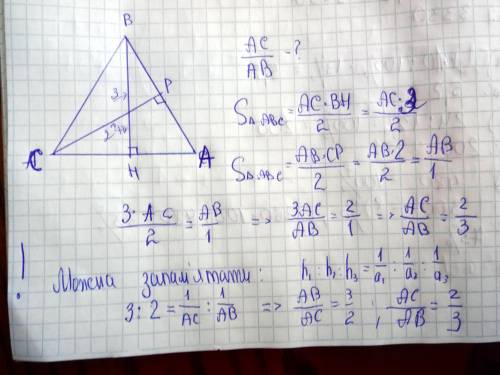 B
3
P
2
C
H
A
AC/AB - ?
S△ABC = AC·BH/2 = AC·3/2
S△ABC = AB·CP/2 = AB·2/2 = AB/1
3·AC/2 = AB/1 => 3AC/AB = 2/1 => AC/AB = 2/3
! Можна запам'ятати: h₁ : h₂ : h₃ = 1/a₁ : 1/a₂ : 1/a₃
3 : 2 = 1/AC : 1/AB => AB/AC = 3/2 ; AC/AB = 2/3